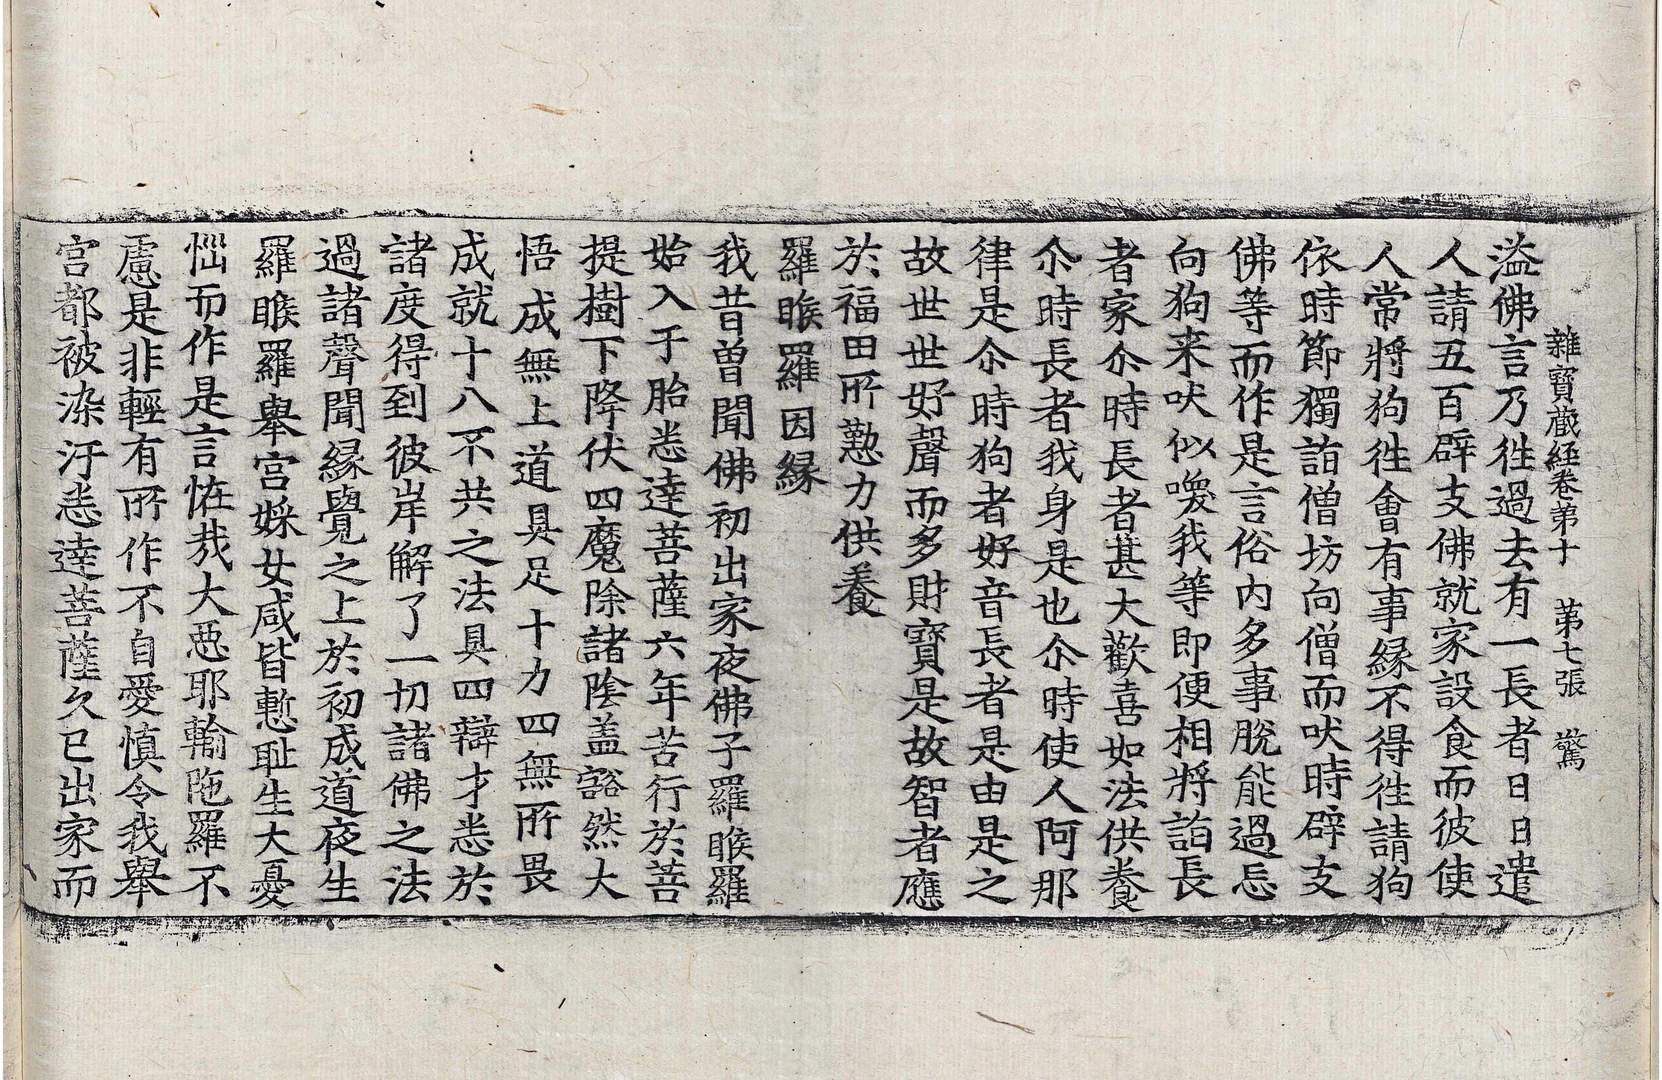 雜寶藏経卷第十 第七張 驚
溢佛言乃徃過去有一長者日日遣
人請五百辟支佛就家設食而彼使
人常將狗徃會有事緣不得徃請狗
依時節獨詣僧坊向僧而吠時辟支
佛等而作是言俗内多事脫能過忘
向狗来吠似喚我等即便相將詣長
者家尒時長者甚大歡喜如法供養
尒時長者我身是也尒時使人阿那
律是尒時狗者好音長者是由是之
故世世好聲而多財寶是故智者應
於福田所懃力供養
羅睺羅因緣
我昔曾聞佛初出家夜佛子羅睺羅
始入于胎悉達菩薩六年苦行於菩
提樹下降伏四魔除諸陰盖豁然大
悟成無上道具足十力四無所畏
成就十八不共之法具四辯才悉於
諸度得到彼岸解了一切諸佛之法
過諸聲聞緣覺之上於初成道夜生
羅睺羅舉宮婇女咸皆慙耻生大憂
惱而作是言恠哉大惡耶輸陁羅不
慮是非輕有所作不自愛慎令我舉
宮都被染汙悉達菩薩久已出家而